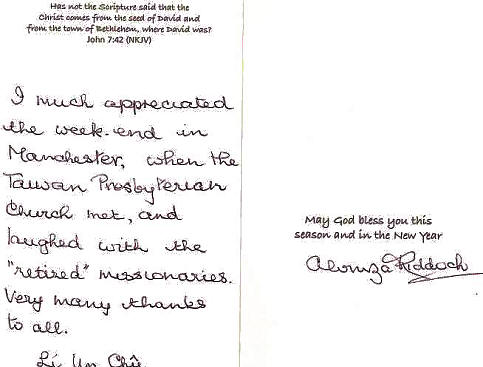 Has not the Scripture said that the
Christ comes from the seed of David and
from the town of Bethlehem, where David was?
John 7:42 (NKJV)
I much appreciated
the week-end in
Manchester, when the
Taiwan Presbyterian
Church met, and
laughed with the
"retired" missionaries.
Very many thanks
to all.
Li Un Chû
May God bless you this
season and in the New Year
Riddoch